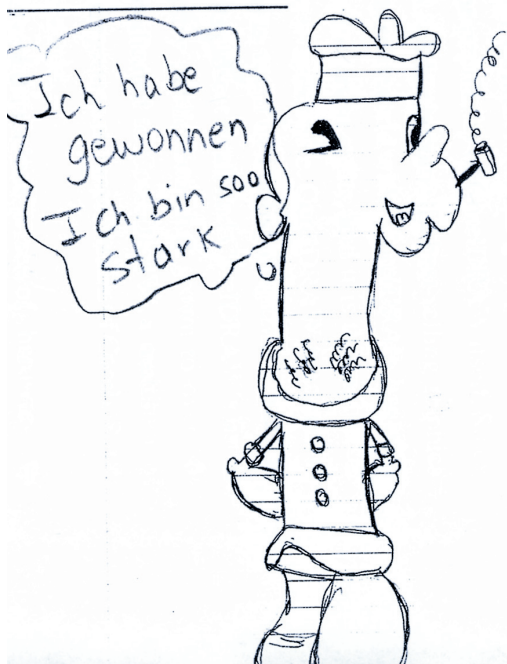 Ich habe
gewonnen
Ich bin soo
stark